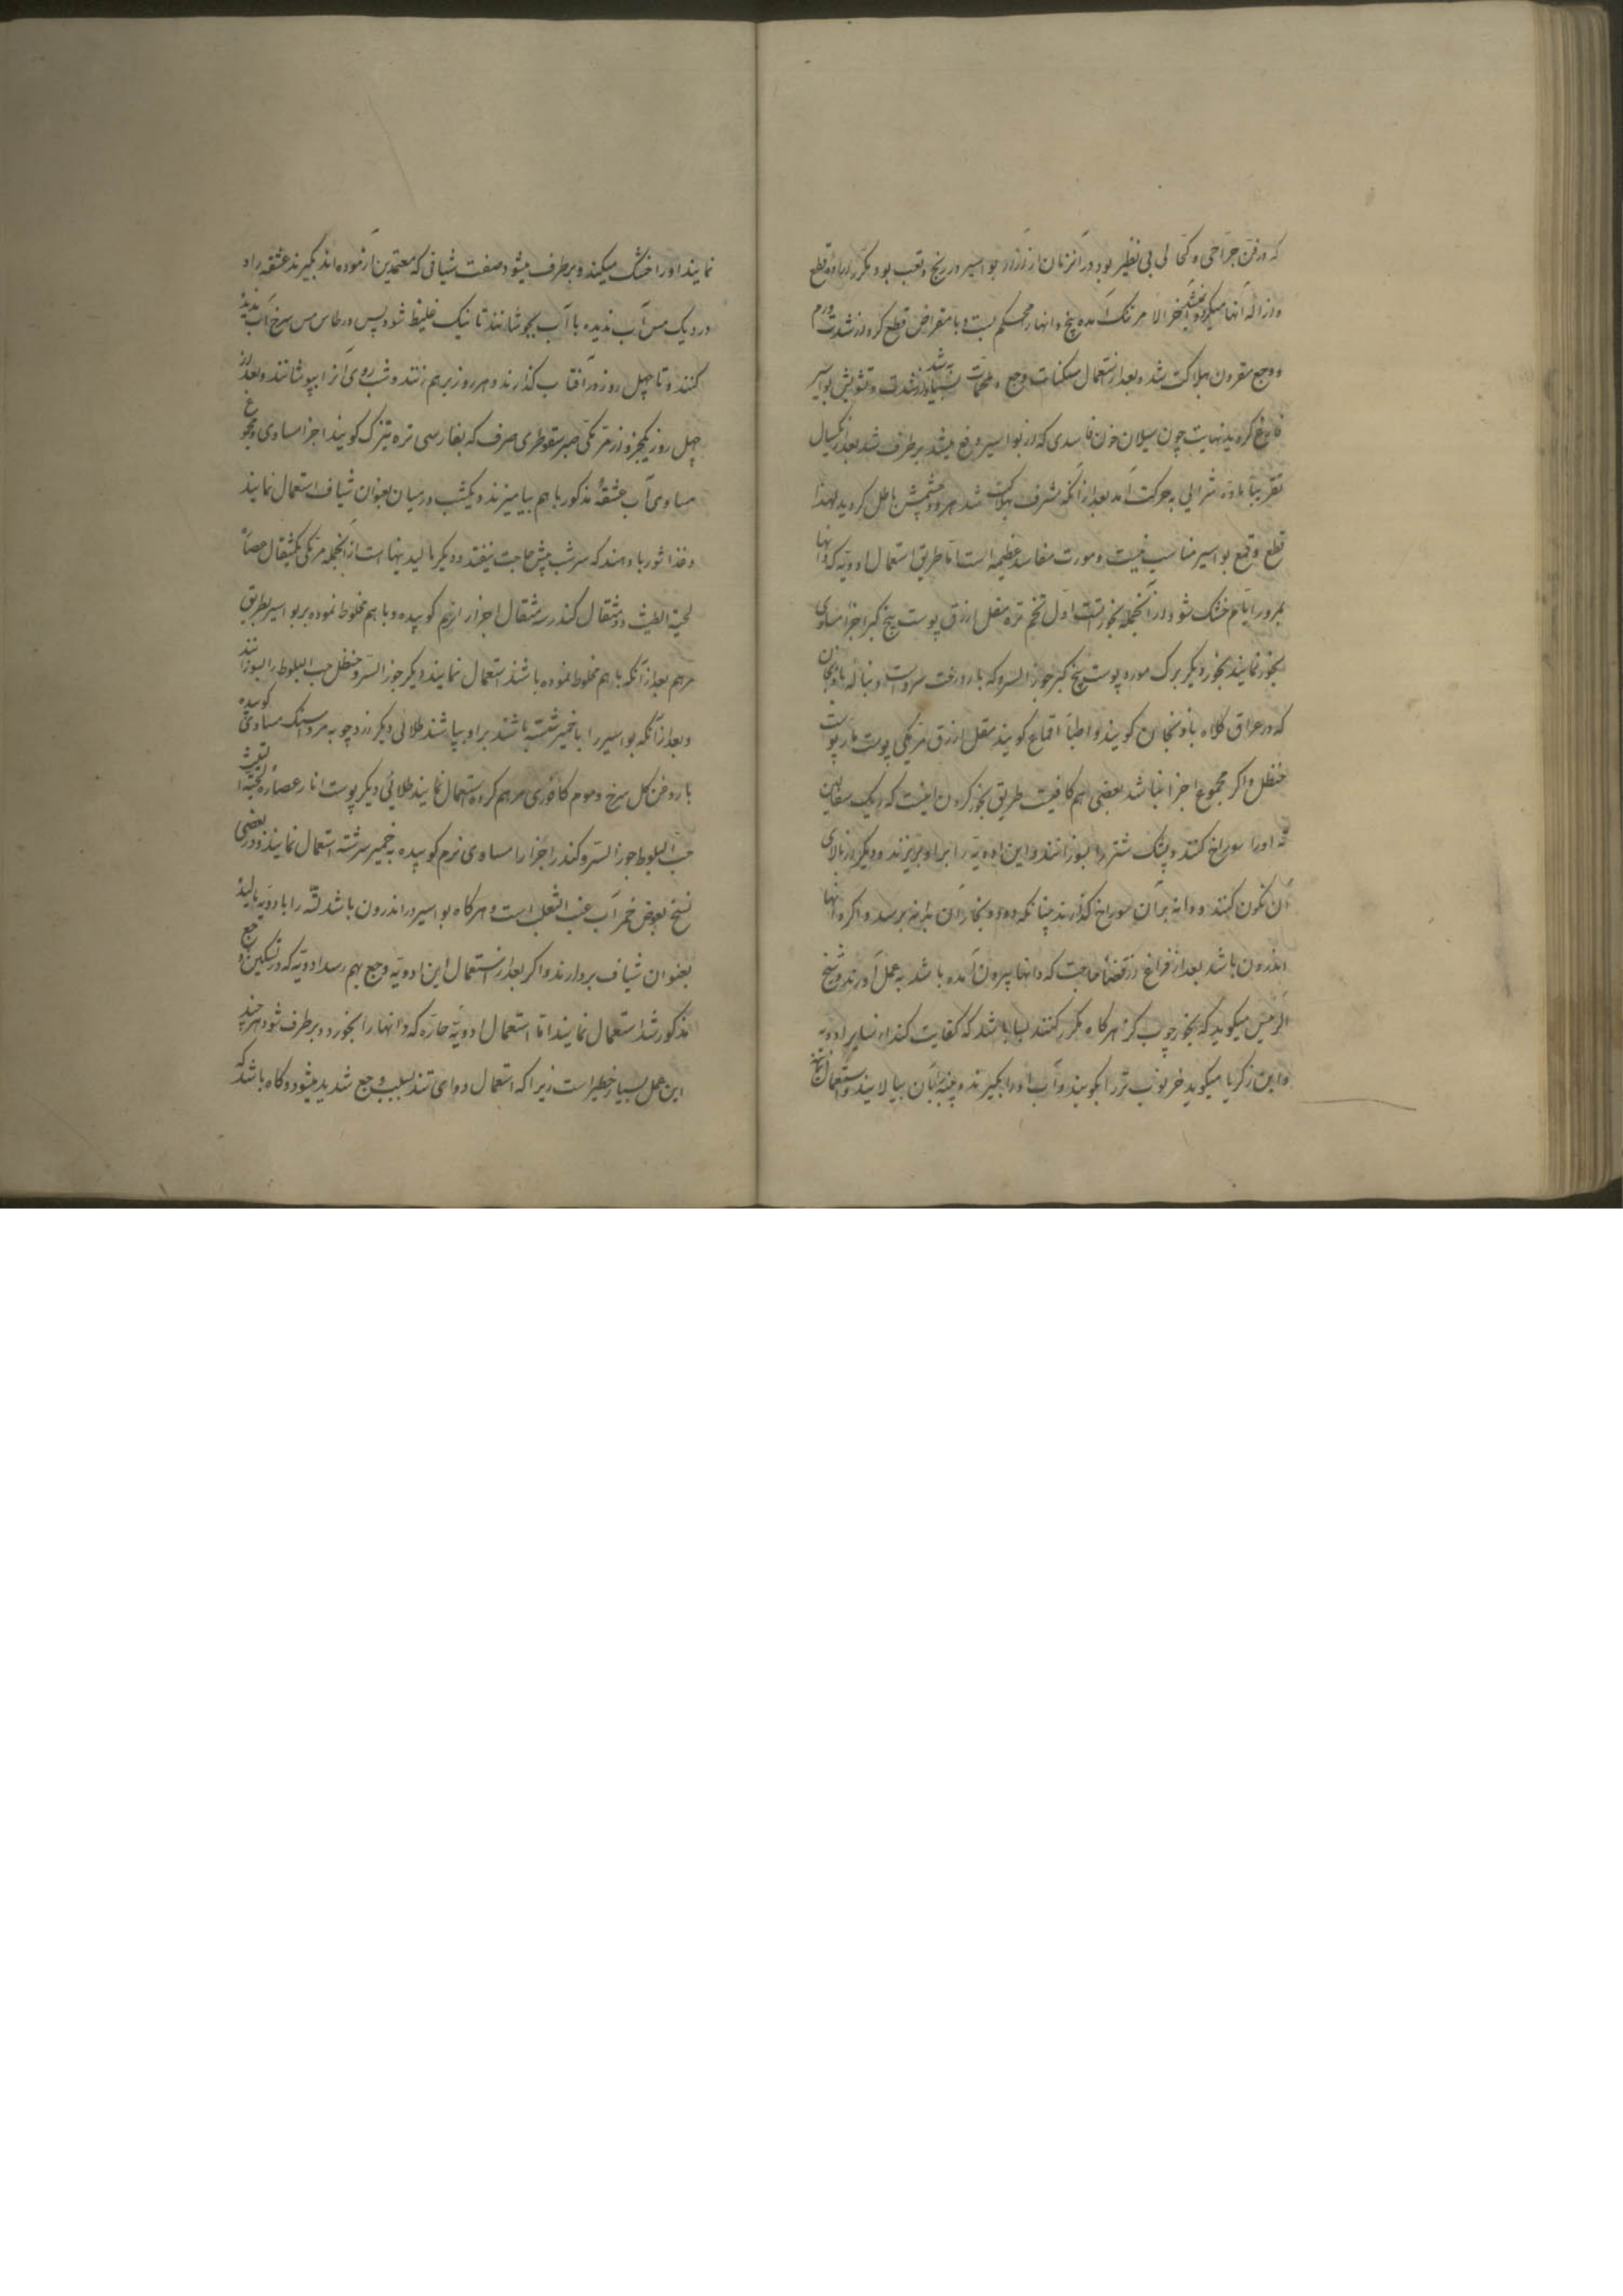 که در فن جراحی و کحالی بی نظیر بود در آنزمان از آزار بواسیر در رنج و تعب بود و مکرر اراده قطع
و ازاله آنها میکرد و نمیشد آخر الامر تنک آمده بیخ دانها را محکم بست و با مقراض قطع کرد از شدت ورم
و وجع مقرون بهلاکت شد و بعد از استعمال مسکنات وجع و ملحمات به شد از شدت و تشویش بواسیر
فارغ کردید نهایت چون سیلان خون فاسدی که از بواسیر دفع میشد برطرف شد بعد از یکسال
تقریبا ماده شرایی به حرکت آمد بعد از آنکه مشرف بهلاکت شد هر دو چشمش باطل کردید لهذا
قطع و قمع بواسیر مناسب نیست و مورث مفاسد عظیمه است اما طریق استعمال ادویه که دانها
بمرور ایام خشک شود از آنجمله بخورتست اول تخم تره مقل ازرق پوست بیخ کبر اجزا مساوی
بخور نمایند بخور دیکر برک مورد پوست بیخ کبر جوز السرو که بار درخت سرو است دنباله بادنجان
که در عراق کلاه بادنجان کویند و اطبا اقماع کویند مقل ازرق مر مکی پوست مار پوست
حنظل و اکر مجموع اجزا نباشد بعضی هم کافیست طریق بخور کردن اینست که دیک سفالین
ته اورا سوراخ کنند و پشک شتر را بسوزانند و این ادویه را بر او بریزند و دیک را از بالای
آن نکون کنند و دانه بر آن سوراخ کذارند چنانکه دود و بخار آن بدانه برسد و اکر دانها
اندرون باشد بعد از فراغ از قضاء حاجت که دانها بیرون آمده باشد به عمل آورند و شیخ
الرئیس میکوید که بخور چوب کز هر کاه مکرر کنند بسا باشد که کفایت کند از سایر ادویه
و ابن زکریا میکوید خرنوب تر را بکویند و آب اورا بکیرند و پنبه بآن بیالایند و استعمال
نمایند اورا خشک میکند و برطرف میشود صفت شیافی که معتمدین آزموده اند بکیرند عشقه را و
در دیک مس آب ندیده با آب بجوشانند تا نیک غلیظ شود پس در طاس مس سرخ آب ندیده
کنند و تا چهل روز در آفتاب کذارند و هر روز برهم زنند و شب روی آنرا بپوشانند و بعد از
چهل روز یکجزو از مر مکی صبر سقوطری حرف که بفارسی تره تیزک کویند اجزا مساوی و مجموع
مساوی آب عشقه مذکور با هم بیامیزند و یکشب در میان بعنوان شیاف استعمال نمایند
و غذا شوربا دهند که سر شب پیش حاجت نیفتد و دیکر مالیدنیهاست از آنجمله مر مکی یکمثقال عصاره
لحیة التیس دو مثقال کندر سه مثقال اجزا را نرم کوبیده و با هم مخلوط نموده بر بواسیر بطریق
مرهم بعد از آنکه با هم مخلوط نموده باشند استعمال نمایند دیکر جوز السرو حنظل حب البلوط را بسوزانند
و بعد از آنکه بواسیر را با خمیر شسته باشند بر او بپاشند طلائی دیکر زردچوبه مرداسنک مساوی کوبیده
با روغن کل سرخ و موم کافوری مرهم کرده استعمال نمایند طلائی دیکر پوست انار عصاره لحیة التیس
حب البلوط جوز السرو کندر اجزا را مساوی نرم کوبیده به خمیر سرشته استعمال نمایند و در بعضی
نسخ بعوض خمر آب عنب الثعلب است و هر کاه بواسیر در اندرون باشد لته را بادویه مالیده
بعنوان شیاف بردارند و اکر بعد از استعمال این ادویه وجع بهم رسد ادویه که در تسکین وجع
مذکور شد استعمال نمایند اما استعمال ادویه حاره که دانها را بخورد و برطرف شود هر چند
این عمل بسیار خطیر است زیرا که استعمال دوای تند بسبب وجع شدید میشود و کاه باشد که